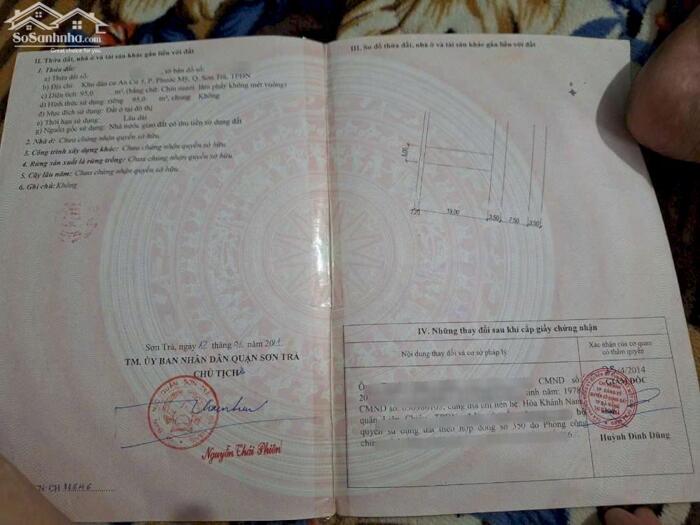 SoSanhnha.com
Great choice for you
II. Thửa đất, nhà ở và tài sản khác gắn liền với đất
1. Thửa đất:
a) Thửa đất số: , tờ bản đồ số:
b) Địa chỉ: Khu dân cư An Cư 5, P. Phước Mỹ, Q. Sơn Trà, TPĐN
c) Diện tích: 95,0 m², (bằng chữ: Chín mươi lăm phẩy không mét vuông)
d) Hình thức sử dụng: riêng 95,0 m², chung Không
đ) Mục đích sử dụng: Đất ở tại đô thị
e) Thời hạn sử dụng: Lâu dài
g) Nguồn gốc sử dụng: Nhà nước giao đất có thu tiền sử dụng đất
2. Nhà ở: Chưa chứng nhận quyền sở hữu.
3. Công trình xây dựng khác: Chưa chứng nhận quyền sở hữu.
4. Rừng sản xuất là rừng trồng: Chưa chứng nhận quyền sở hữu.
5. Cây lâu năm: Chưa chứng nhận quyền sở hữu.
6. Ghi chú: Không
Sơn Trà, ngày tháng năm
TM. ỦY BAN NHÂN DÂN QUẬN SƠN TRÀ
CHỦ TỊCH
Nguyễn Thái Phiên
III. Sơ đồ thửa đất, nhà ở và tài sản khác gắn liền với đất
5,00
19,00 3,50 7,50 3,50
IV. Những thay đổi sau khi cấp giấy chứng nhận
Nội dung thay đổi và cơ sở pháp lý
Xác nhận của cơ quan
có thẩm quyền
/4/2014
Ô CMND số GIÁM ĐỐC
sinh năm: 1978
CMND số cùng địa chỉ liên hệ: Hòa Khánh Nam,
quận
quyền sử dụng đất theo hợp đồng số 350 do Phòng công
Huỳnh Đình Dũng